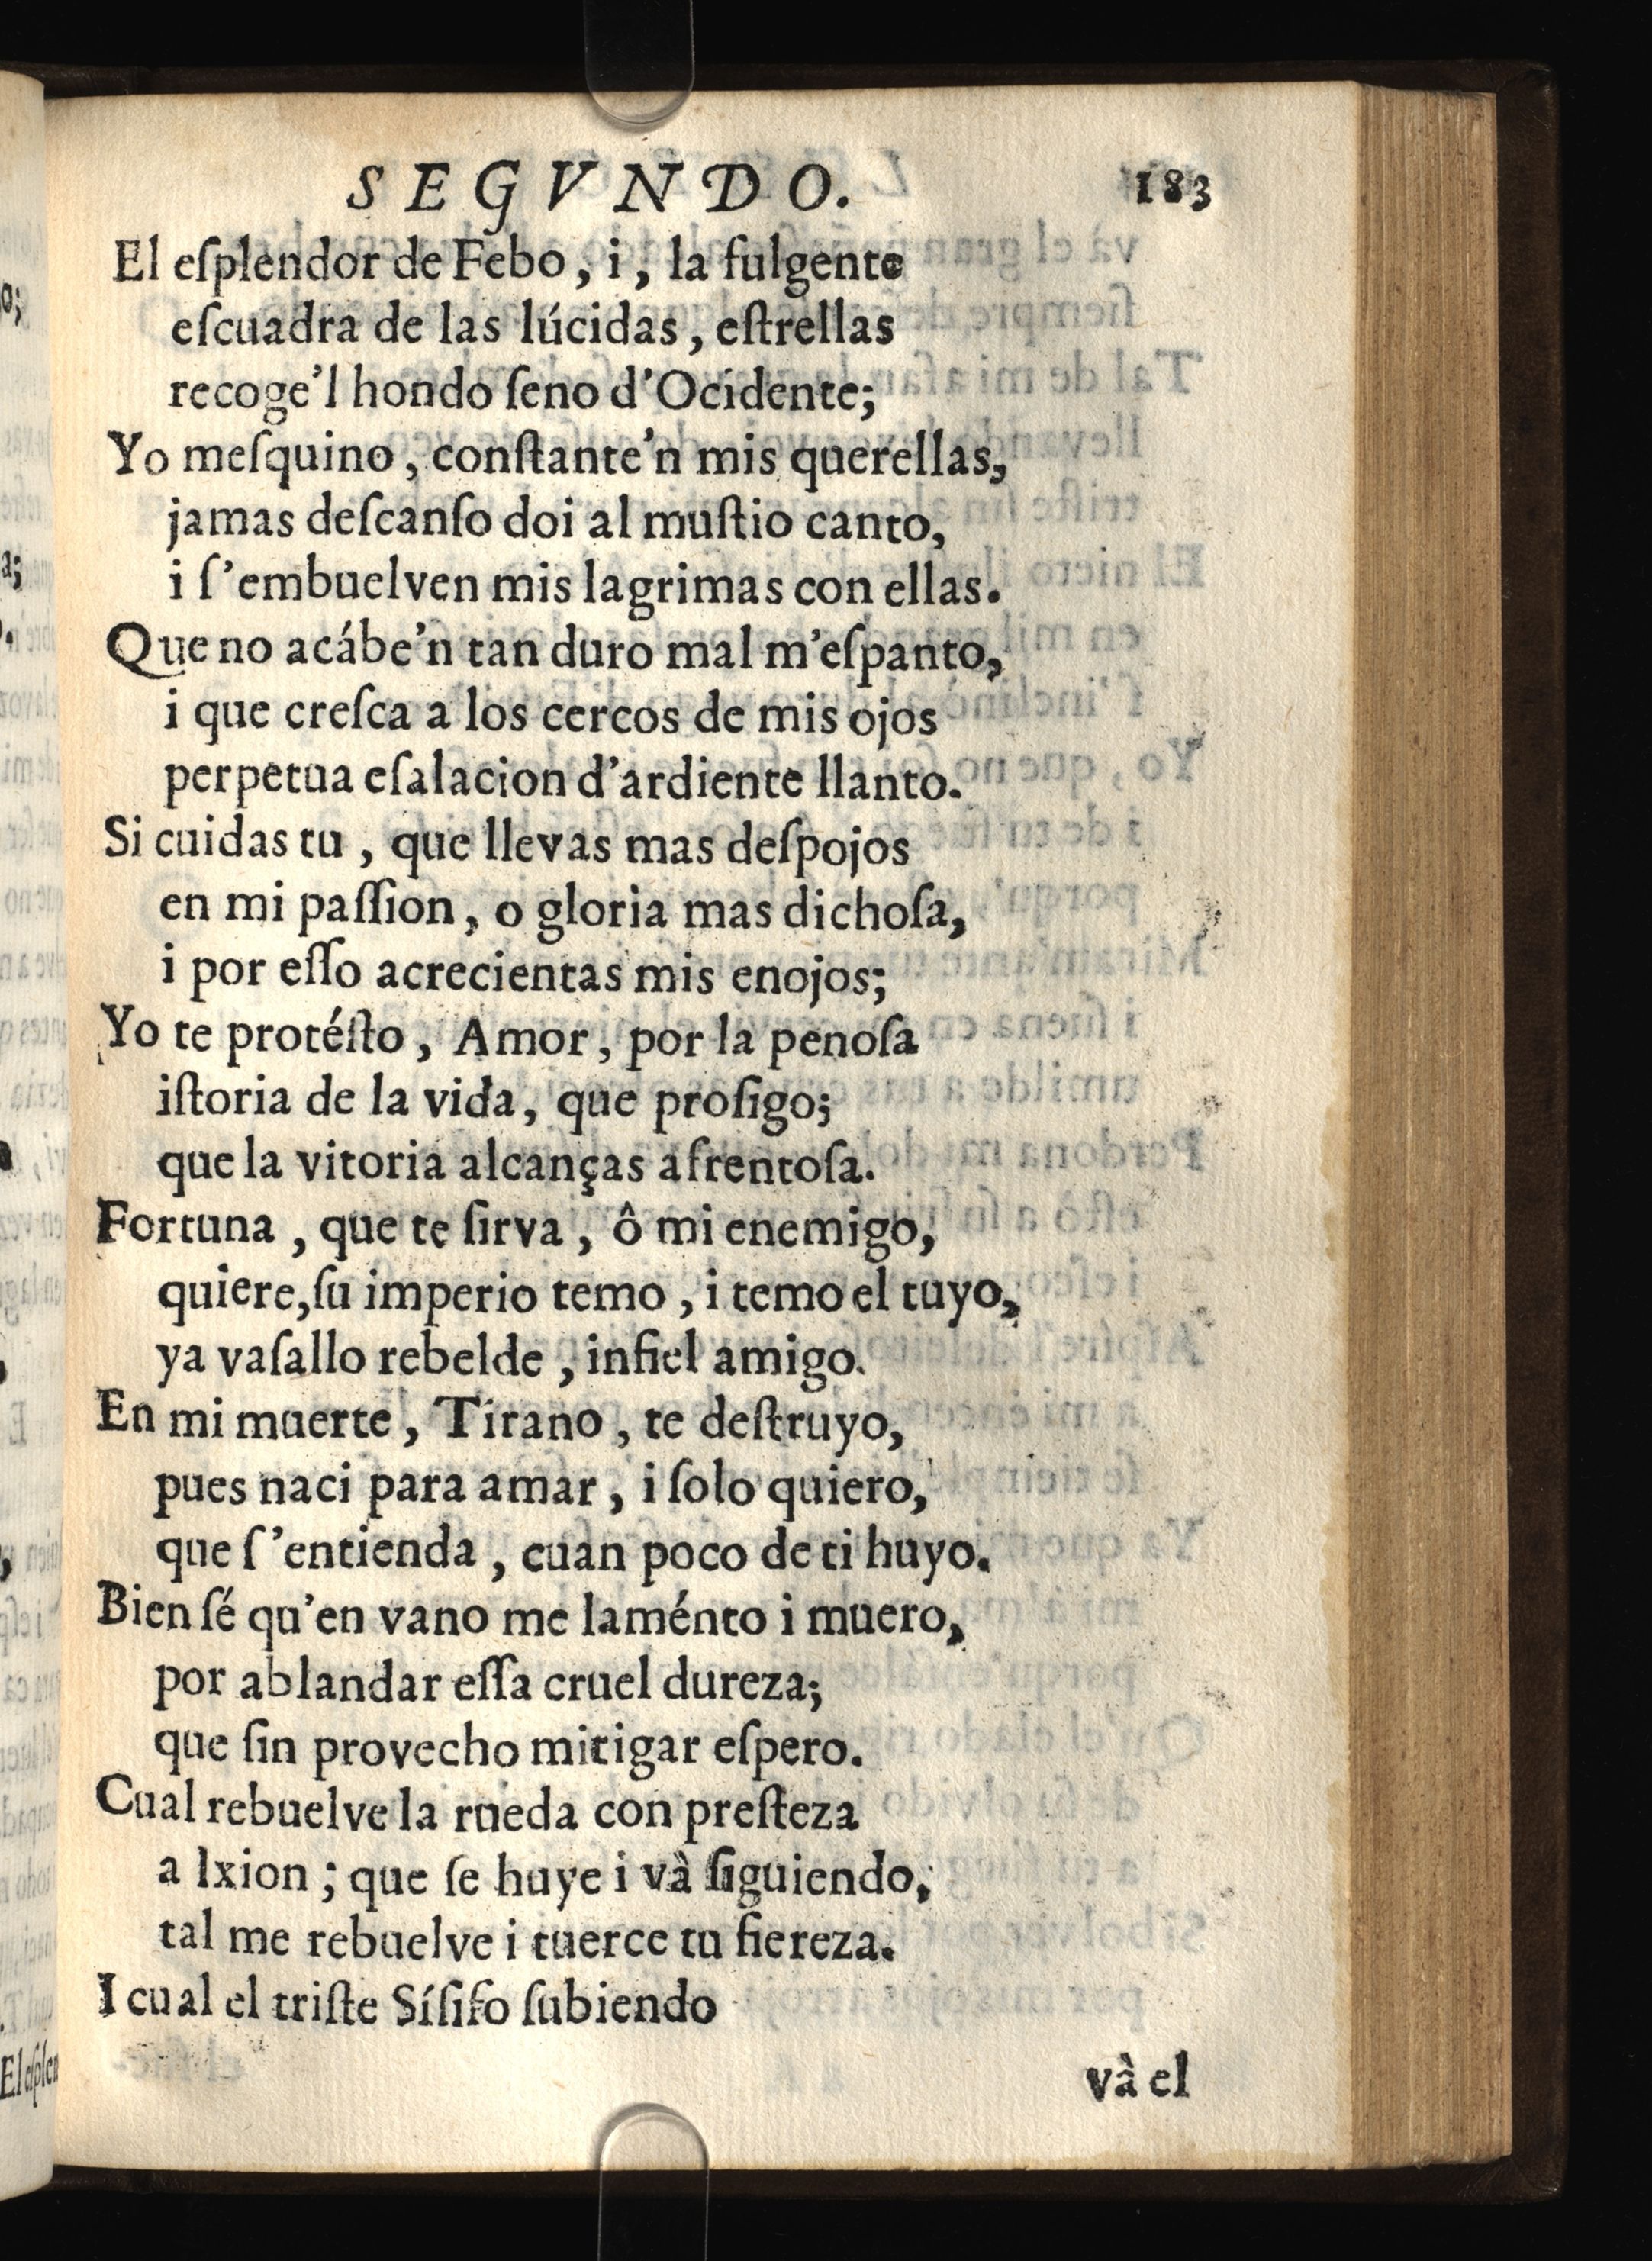 SEGVNDO. 183
El eſplendor de Febo, i, la fulgente
eſcuadra de las lúcidas, eſtrellas
recoge'l hondo ſeno d'Ocidente;
Yo meſquino, conſtante'n mis querellas,
jamas deſcanſo doi al muſtio canto,
i ſ'embuelven mis lagrimas con ellas.
Que no acábe'n tan duro mal m'eſpanto,
i que creſca a los cercos de mis ojos
perpetua eſalacion d'ardiente llanto.
Si cuidas tu, que llevas mas deſpojos
en mi paſſion, o gloria mas dichoſa,
i por eſſo acrecientas mis enojos;
Yo te protéſto, Amor, por la penoſa
iſtoria de la vida, que proſigo;
que la vitoria alcanças afrentoſa.
Fortuna, que te ſirva, ô mi enemigo,
quiere, ſu imperio temo, i temo el tuyo,
ya vaſallo rebelde, infiel amigo.
En mi muerte, Tirano, te deſtruyo,
pues naci para amar, i ſolo quiero,
que ſ'entienda, cuan poco de ti huyo.
Bien ſé qu'en vano me laménto i muero,
por ablandar eſſa cruel dureza;
que ſin provecho mitigar eſpero.
Cual rebuelve la rueda con preſteza
a Ixion; que ſe huye i và ſiguiendo,
tal me rebuelve i tuerce tu fiereza.
I cual el triſte Síſifo ſubiendo
và el